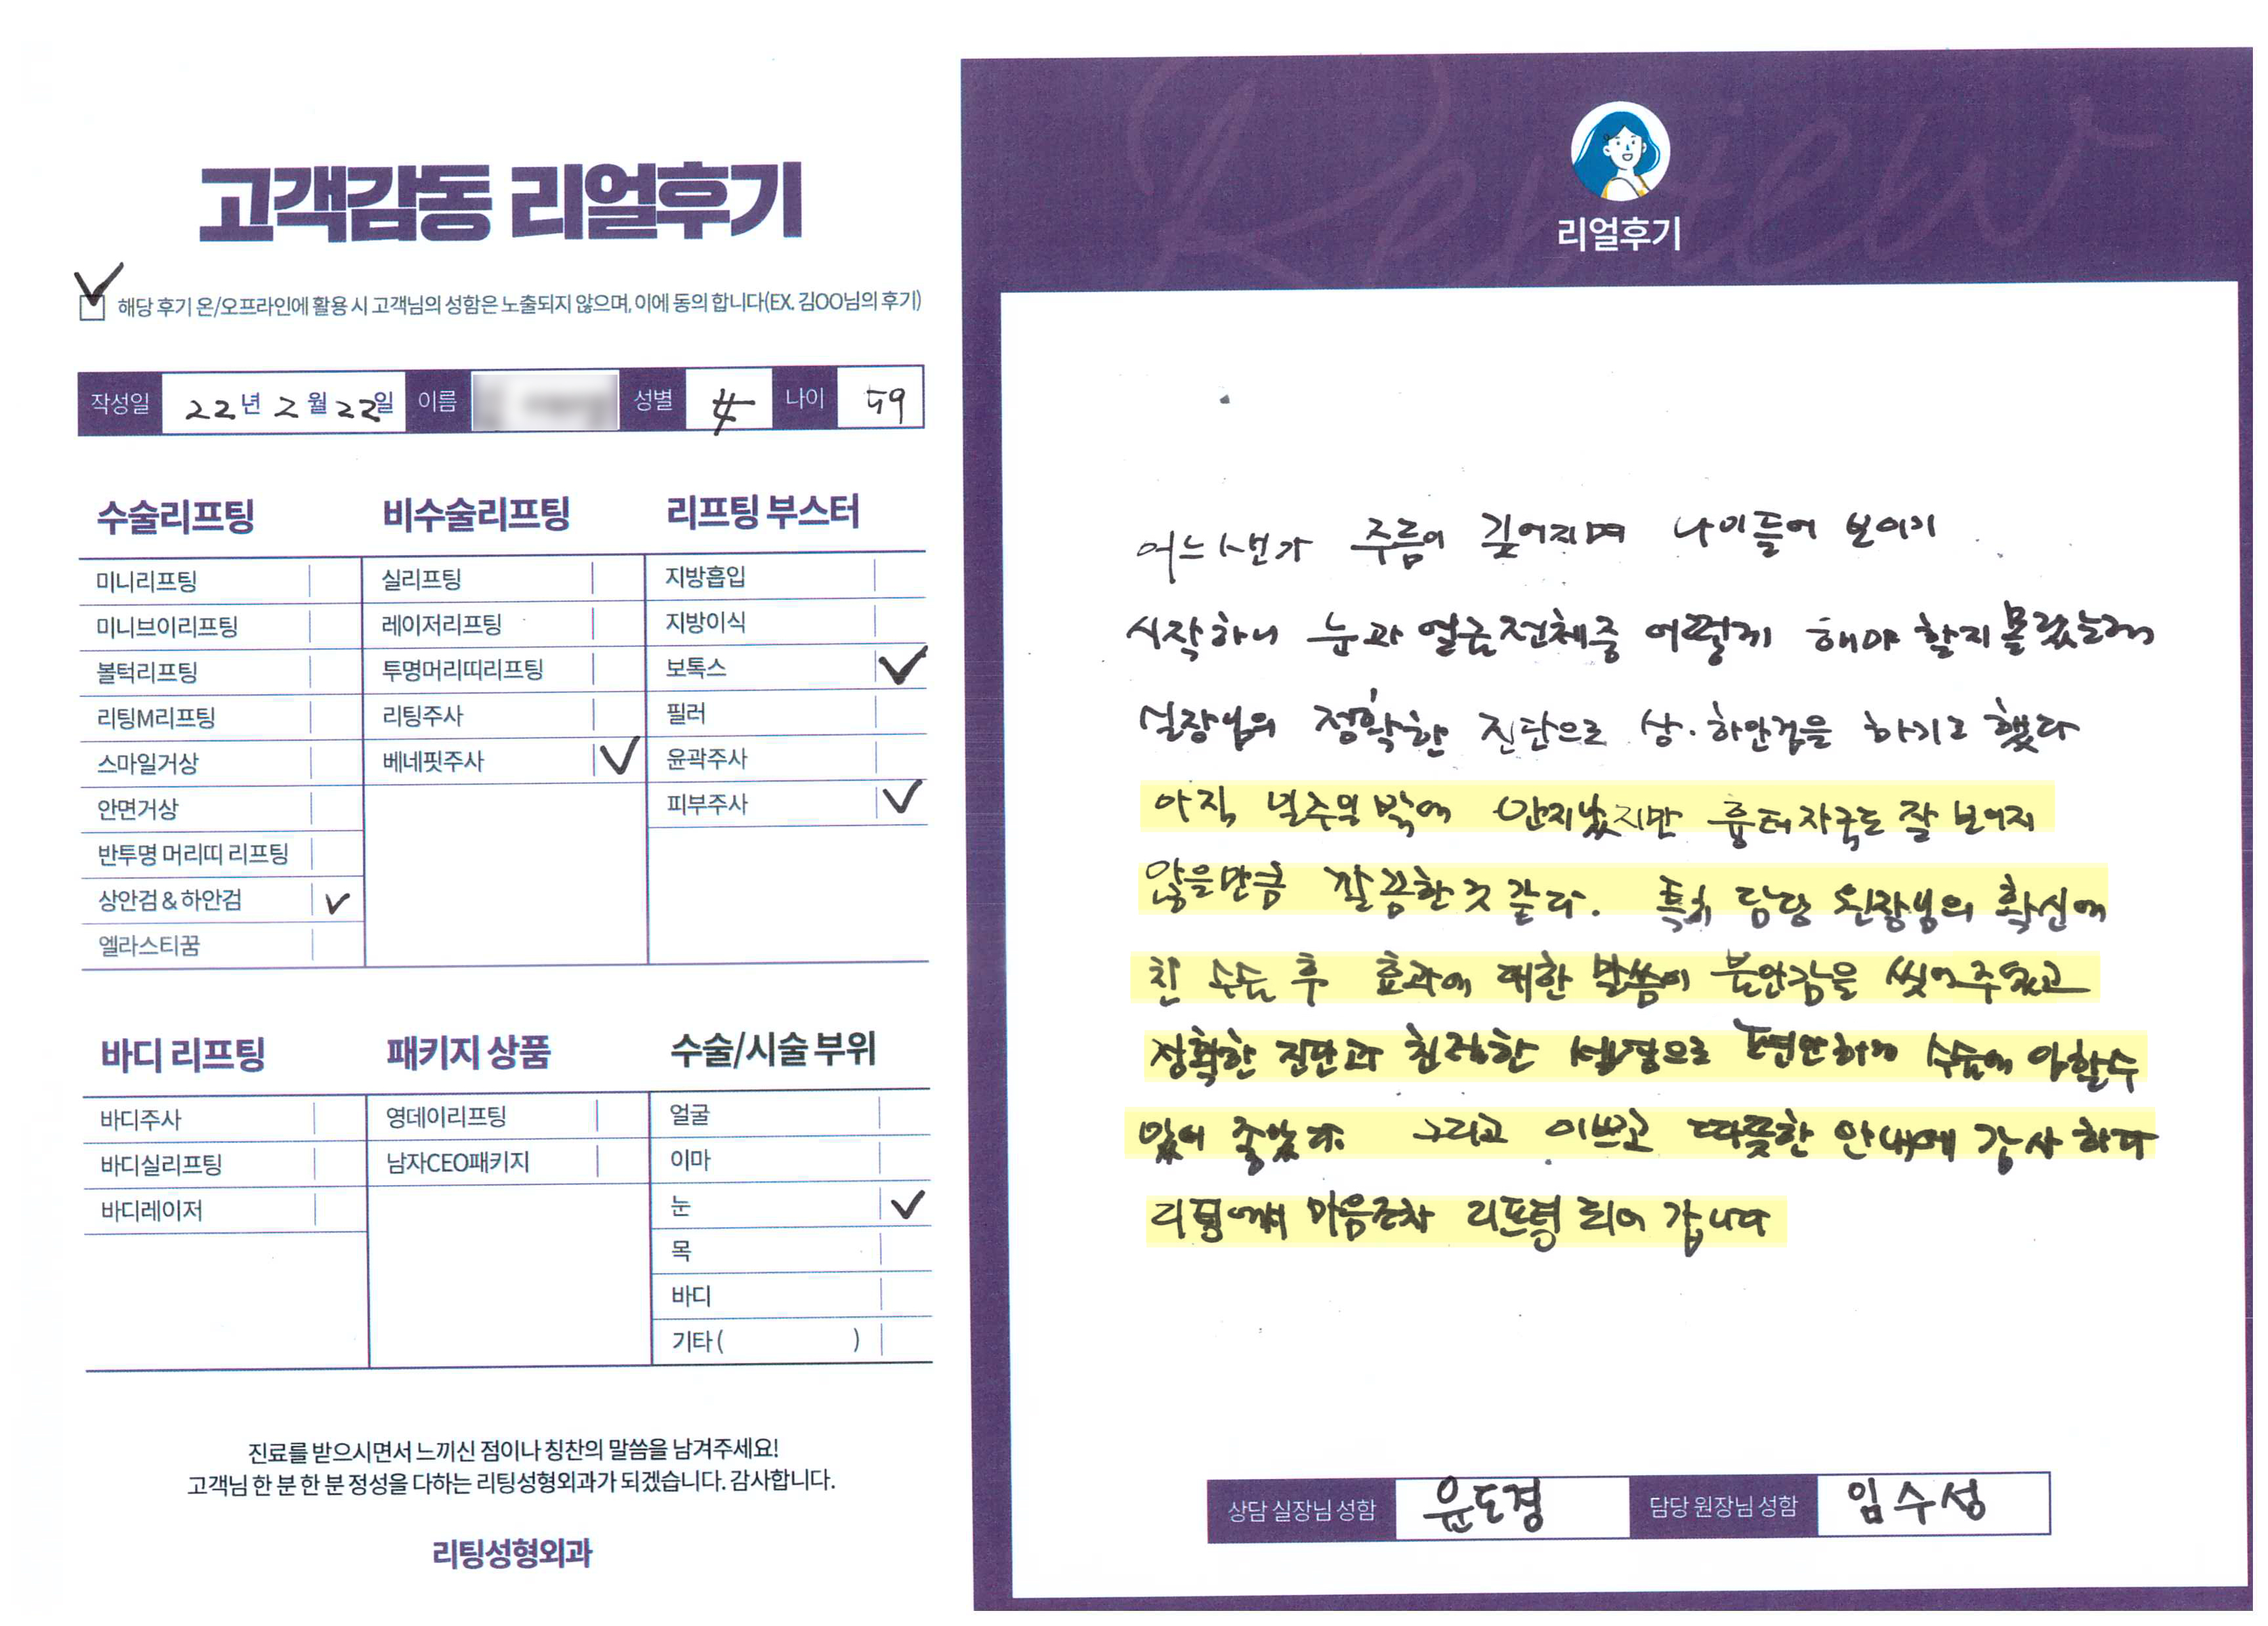 고객감동 리얼후기
해당 후기 온/오프라인에 활용 시 고객님의 성함은 노출되지 않으며, 이에 동의 합니다(EX. 김OO님의 후기)
작성일 22년 2월 22일 이름 성별 女 나이 59
수술리프팅
미니리프팅
미니브이리프팅
볼턱리프팅
리팅M리프팅
스마일거상
안면거상
반투명 머리띠 리프팅
상안검 & 하안검
엘라스티꿈
비수술리프팅
실리프팅
레이저리프팅
투명머리띠리프팅
리팅주사
베네핏주사
리프팅 부스터
지방흡입
지방이식
보톡스
필러
윤곽주사
피부주사
바디 리프팅
바디주사
바디실리프팅
바디레이저
패키지 상품
영데이리프팅
남자CEO패키지
수술/시술 부위
얼굴
이마
눈
목
바디
기타 ( )
진료를 받으시면서 느끼신 점이나 칭찬의 말씀을 남겨주세요!
고객님 한 분 한 분 정성을 다하는 리팅성형외과가 되겠습니다. 감사합니다.
리팅성형외과
Review
리얼후기
어느샌가 주름이 깊어지며 나이들어 보이기
시작하니 눈과 얼굴전체중 어떻게 해야 할지 몰랐는데
실장님의 정확한 진단으로 상.하안검을 하기로 했다
아직 밖에 안지났지만 흉터자국도 잘 보이지
않을만큼 깔끔한것 같다. 특히 담당 원장님의 확신에
찬 수술 후 효과에 대한 말씀이 불안감을 씻어주었고
정확한 진단과 친절한 설명으로 편안하게 수술에 임할수
있어 좋았다. 그리고 이쁘고 따뜻한 안내에 감사하다
리팅에서 마음조차 리프팅 되어 갑니다
상담 실장님 성함 윤도경 담당 원장님 성함 임수성